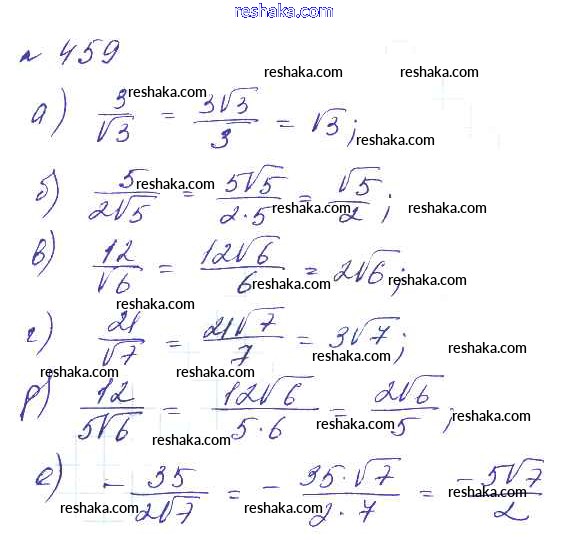 reshaka.com
№ 459
reshaka.com reshaka.com
а) 3/√3 = 3√3/3 = √3;
reshaka.com reshaka.com reshaka.com
б) 5/2√5 = 5√5/2·5 = √5/2;
reshaka.com reshaka.com reshaka.com
в) 12/√6 = 12√6/6 = 2√6;
reshaka.com reshaka.com reshaka.com
г) 21/√7 = 21√7/7 = 3√7;
reshaka.com reshaka.com reshaka.com
д) 12/5√6 = 12√6/5·6 = 2√6/5;
reshaka.com reshaka.com reshaka.com
е) - 35/2√7 = - 35·√7/2·7 = - 5√7/2
reshaka.com reshaka.com reshaka.com